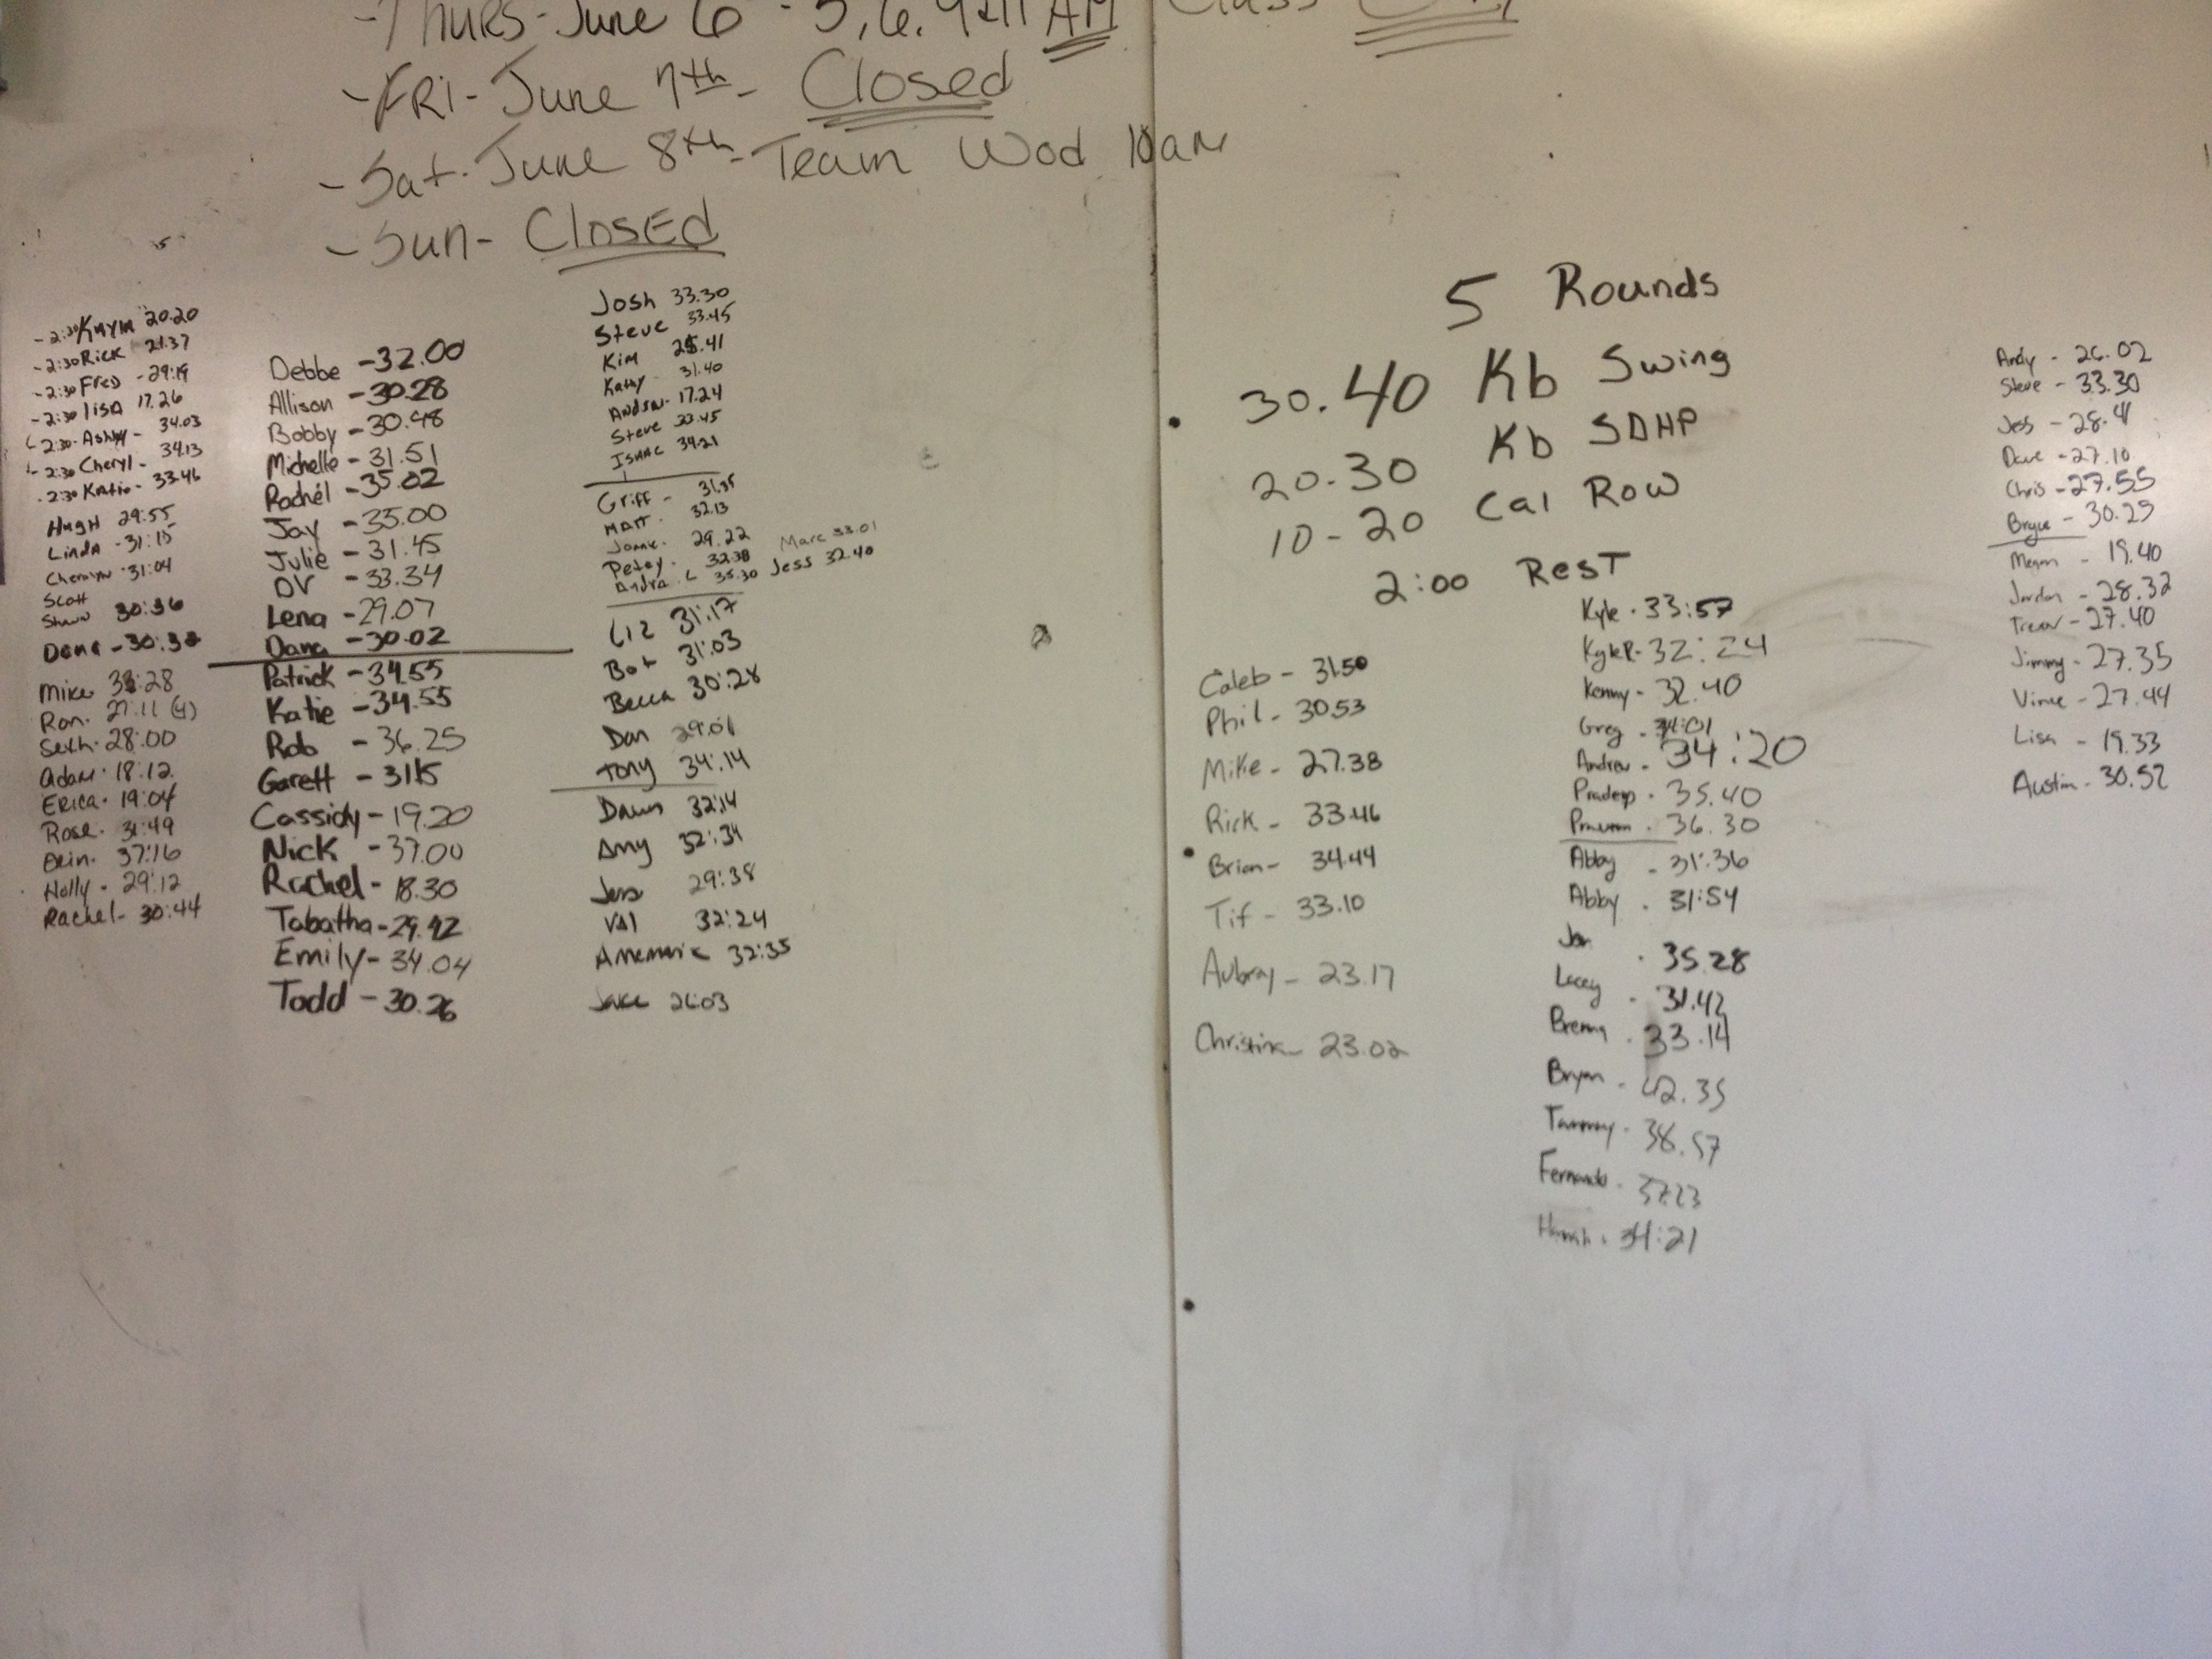 -Thurs-June 6 - 5, 6, 9 AM Class
-FRI-June 7th- Closed
-Sat. June 8th- Team Wod 10am
-Sun- Closed
-2:30 20.20
-2:30 Rick 21.37
-2:30 Fred -29:19
-2:30 Lisa 17.26
2:30- Ashly- 34.03
-2:30 Cheryl- 34.13
-2:30 Katie- 33.46
Hugh 29:55
Linda -31:15
31:04
Scott
Shawn 30:36
Dana -30:32
Mike 28
Ron. 27:11 (4)
Seth. 28:00
Adam. 18:12
Erica. 19:04
Rose. 31:49
Erin. 37:16
Holly - 29:12
Rachel- 30:44
Debbe -32.00
Allison -30.28
Bobby -30.48
Michelle -31.51
Rachel -35.02
Jay -35.00
Julie -31.45
DV -33.34
Lena -29.07
Dana -30.02
Patrick -34.55
Katie -34.55
Rob -36.25
Garett -31.15
Cassidy-19.20
Nick -37.00
Rachel- 18.30
Tabatha-29.42
Emily- 34.04
Todd -30.26
Josh 33.30
Steve 33.45
Kim .41
Kathy 31.40
17.24
Steve 33.45
Isaac 34.21
Griff -
Matt. 32.13
29.22 Marc 33.01
Petey. 32.38
Andra. L 35.30 Jess 32.40
Liz 31:17
Bob 31:03
Becca 30:28
Dan 29:01
Tony 34:14
Dawn 32:14
Amy 32:34
Jess 29:38
Val 32:24
Annemarie 32:35
Jake 26:03
5 Rounds
30.40 Kb Swing
20.30 Kb SDHP
10-20 Cal Row
2:00 Rest
Caleb - 31.50
Phil- 30.53
Mike- 27.38
Rick - 33.46
Brian- 34.44
Tif - 33.10
Aubray - 23.17
Christina- 23.02
Kyle. 33:57
KyleR- 32:24
Kenny- 32.40
Greg - :01
Andrew - 34:20
Pradeep - 35.40
36.30
Abby - 31:36
Abby . 31:54
Jon . 35.28
Lacey . 31.42
Brenna . 33.14
Bryan - 42.35
Tammy- 38.57
Fernando. 37.23
Hannah. 34:21
Andy - 26.02
Steve - 33.30
Jess - 28.41
Dave -27.10
Chris -27.55
Bryce - 30.29
Megan - 19.40
Jordan - 28.32
Trevor -27.40
Jimmy- 27.35
Vince -27.44
Lisa - 19.33
Austin- 30.52